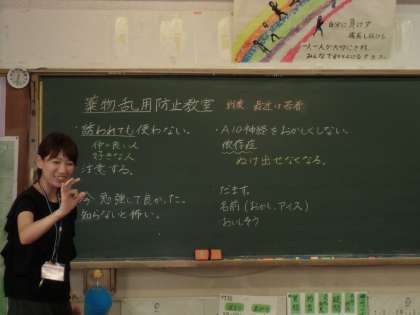 自分に負けず
成長し続ける
一人一人が大切にされ
みんなで
薬物乱用防止教室
・誘われても使わない。
仲の良い人
好きな人
注意する。
・今 勉強して良かった。
知らないと怖い。
・A10神経をおかしくしない。
依存症
ぬけ出せなくなる。
・だます。
名前(おかし、アイス)
・おいしそう